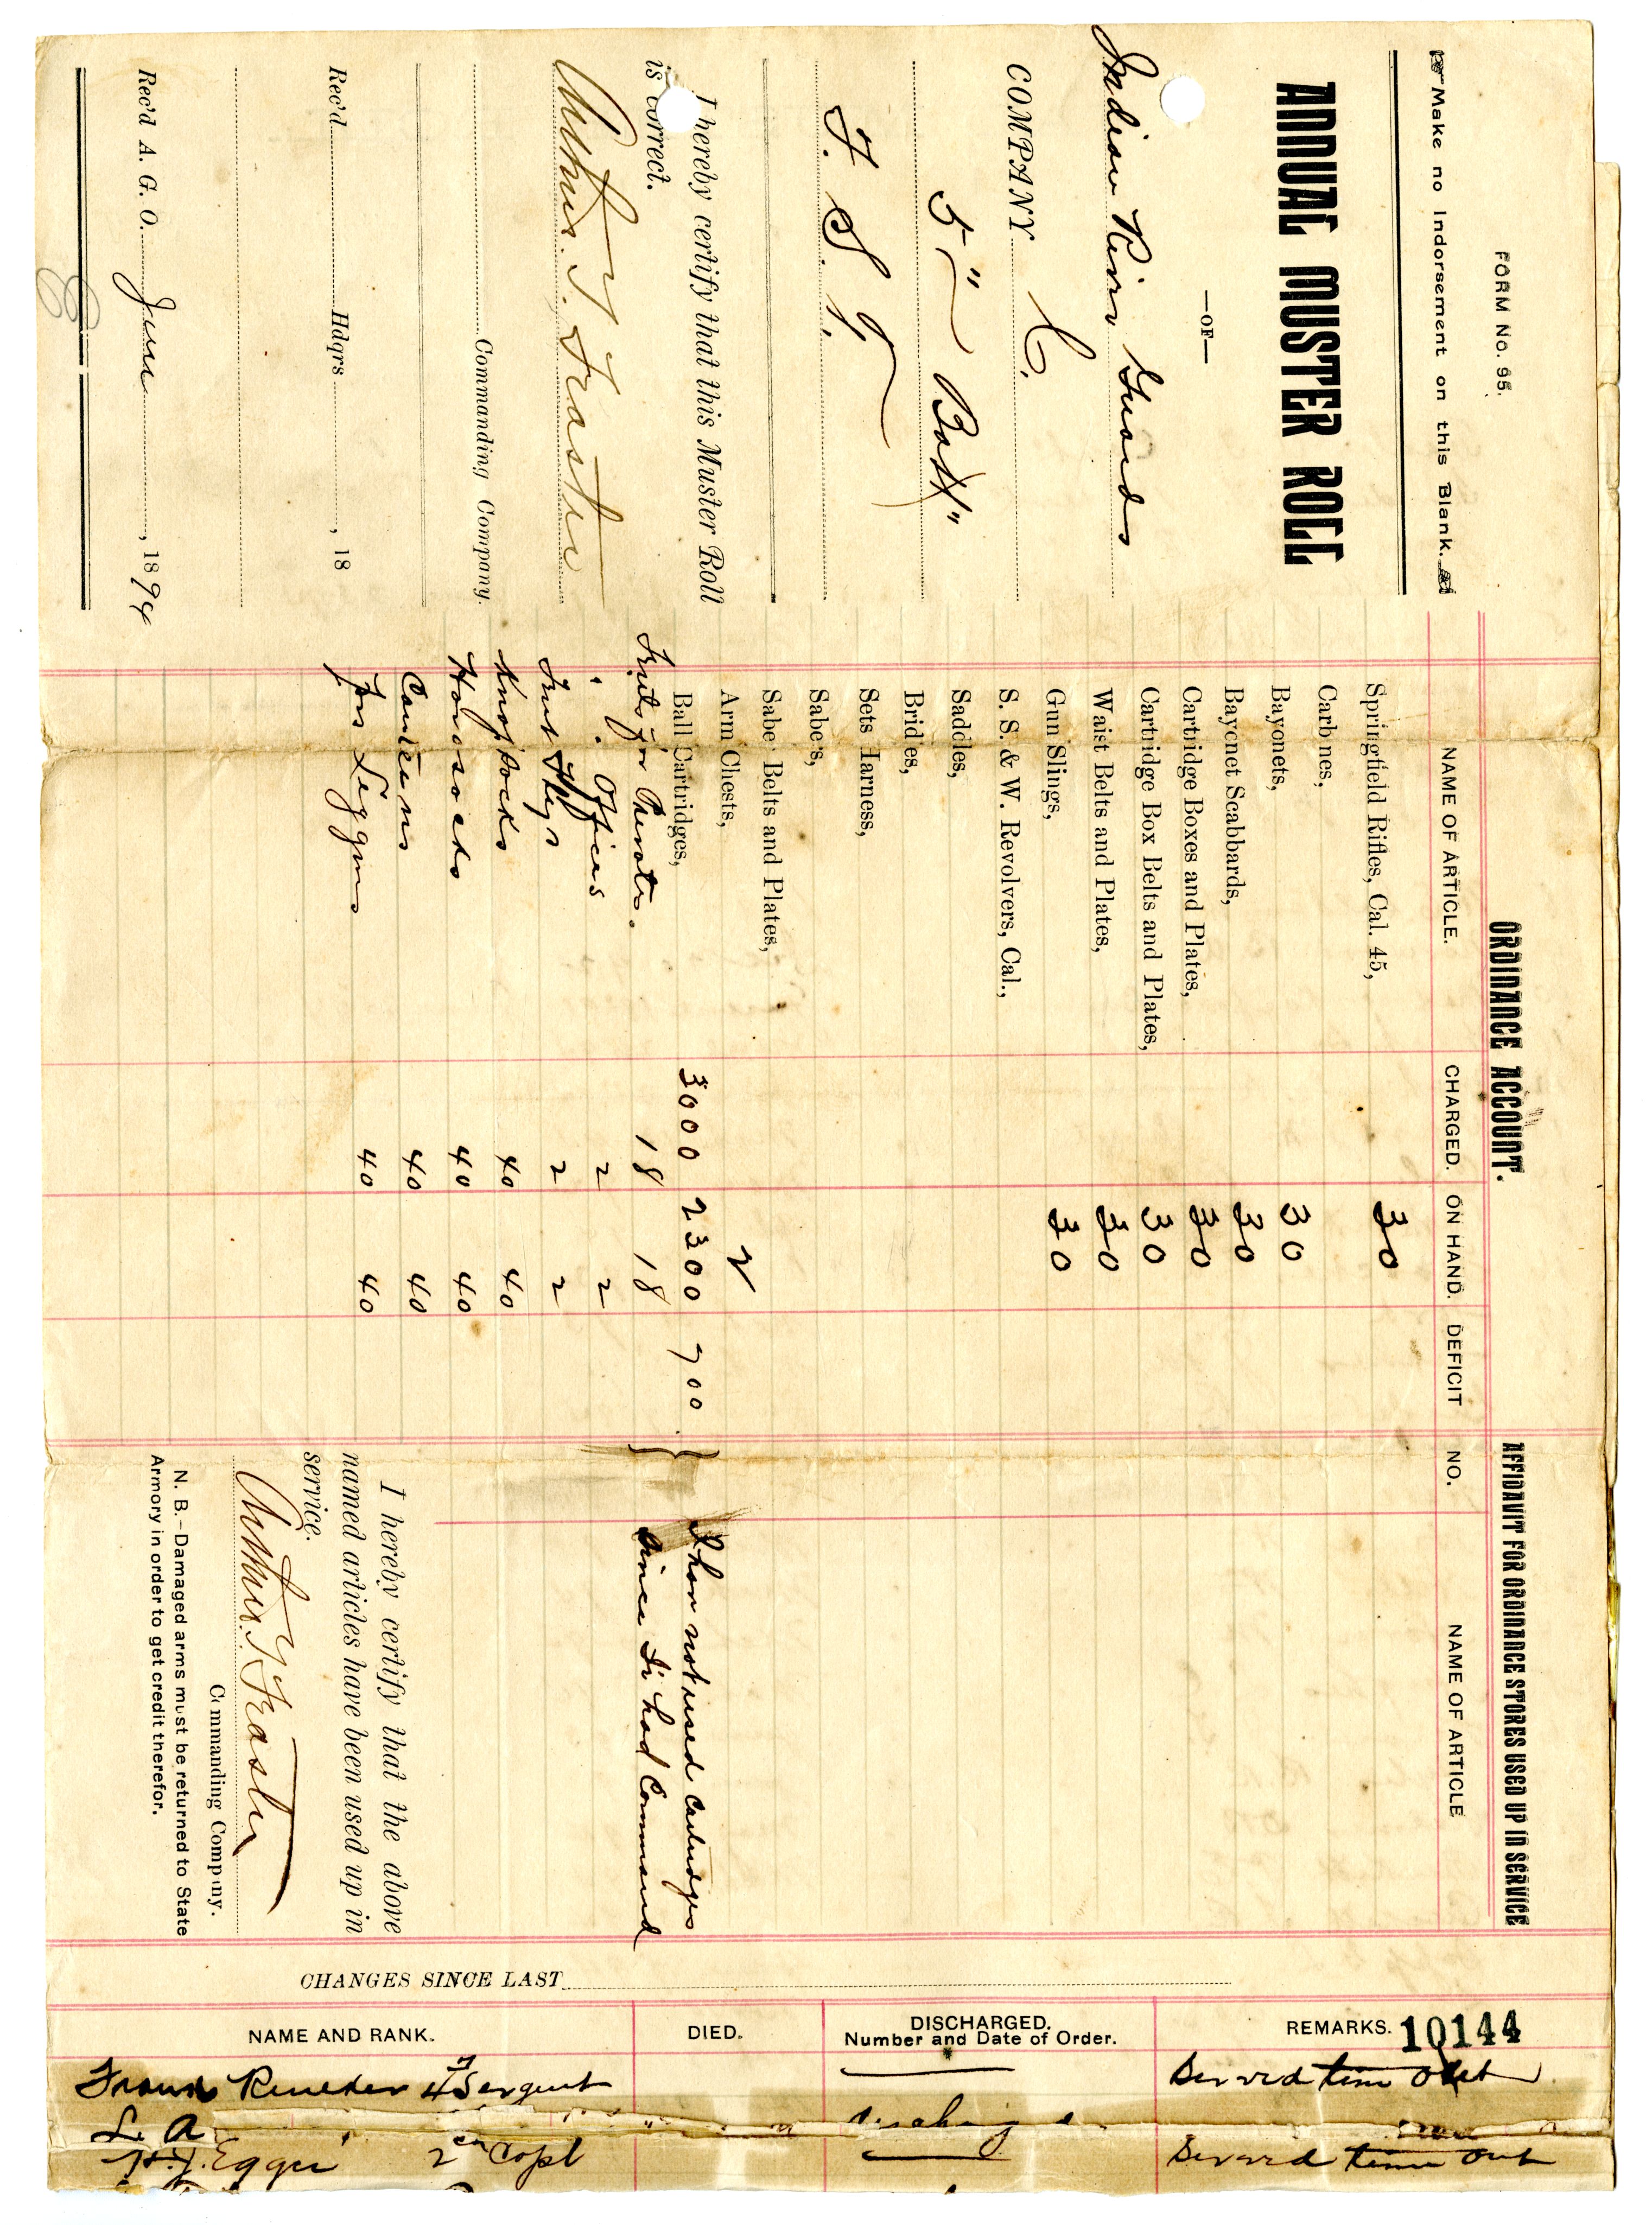 FORM No. 95.
Make no Indorsement on this Blank.
ANNUAL MUSTER ROLL
—OF—
Indian River Guards
COMPANY C.
5" Batt"
F. S. T.
I hereby certify that this Muster Roll
is correct.
Commanding Company.
Rec'd Hdqrs , 18
Rec'd A. G. O. June , 1894
ORDINANCE ACCOUNT.
NAME OF ARTICLE. CHARGED. ON HAND. DEFICIT
Springfield Rifles, Cal. 45, 30
Carbines,
Bayonets, 30
Bayonet Scabbards, 30
Cartridge Boxes and Plates, 30
Cartridge Box Belts and Plates, 30
Waist Belts and Plates, 30
Gun Slings, 30
S. S. & W. Revolvers, Cal.,
Saddles,
Bridles,
Sets Harness,
Sabers,
Saber Belts and Plates,
Arm Chests, 2
Ball Cartridges, 3000 2300 700
for 18 18
" " Officers 2 2
2 2
Knapsacks 40 40
Haversacks 40 40
Canteens 40 40
Leggins 40 40
AFFIDAVIT FOR ORDINANCE STORES USED UP IN SERVICE
NO. NAME OF ARTICLE
I have not used Cartridges
since I had Command
I hereby certify that the above
named articles have been used up in
service.
Commanding Company.
N. B.—Damaged arms must be returned to State
Armory in order to get credit therefor.
CHANGES SINCE LAST
NAME AND RANK. DIED. DISCHARGED. REMARKS. 10144
Number and Date of Order.
4" Sergent Served time out
L. A
Egger 2" Copl Served time out